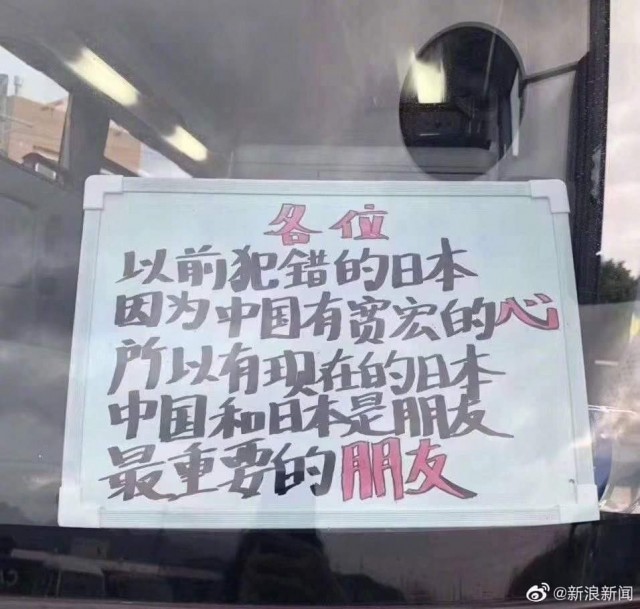 各位
以前犯错的日本
因为中国有宽宏的心
所以有现在的日本
中国和日本是朋友
最重要的朋友
@新浪新闻